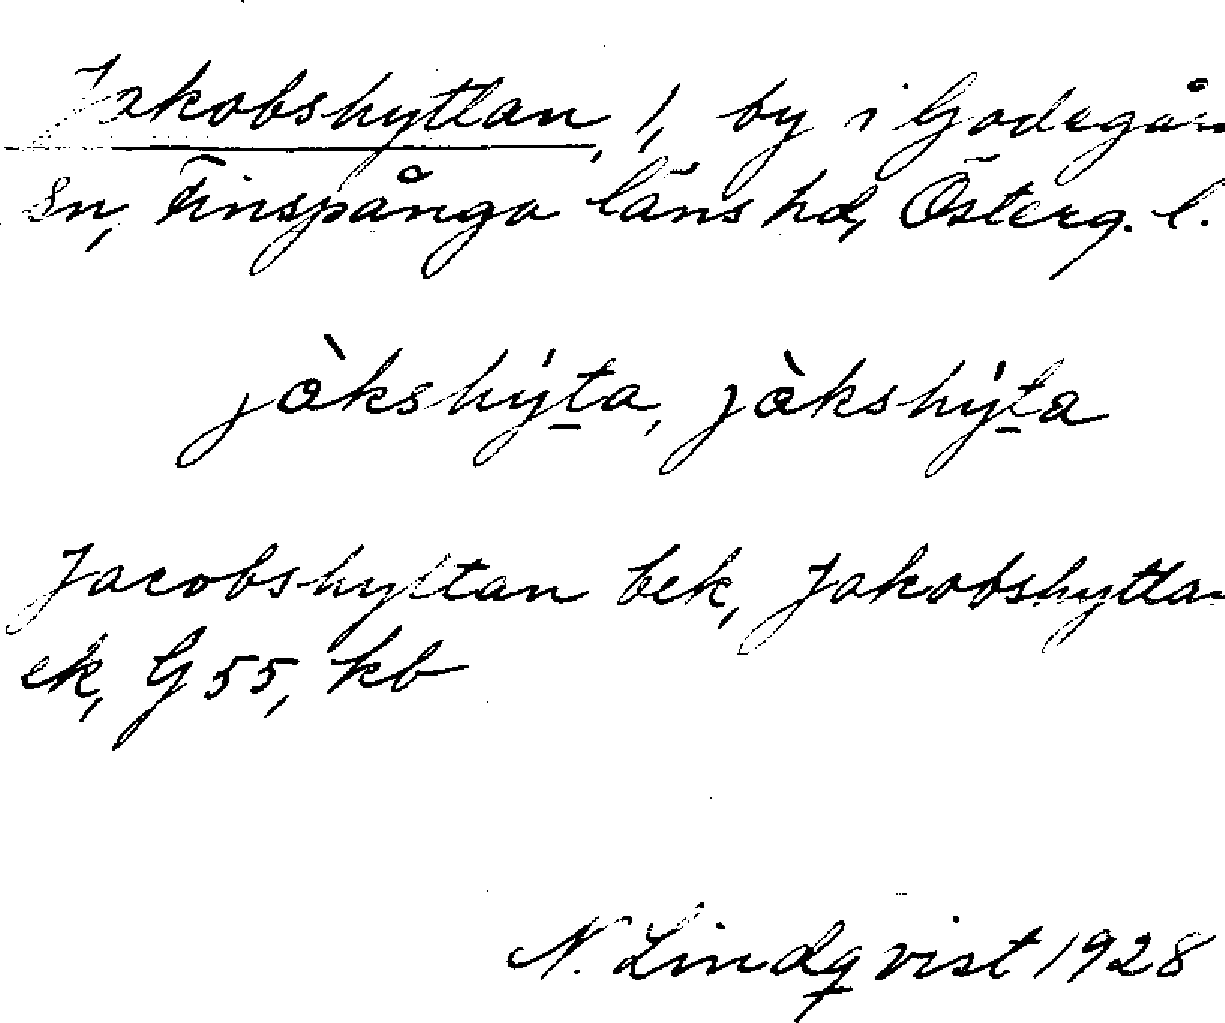 Jakobshyttan, 1, by i Godegår
sn, Finspånga läns hd, Österg. l.
jàkshy̍ta, jàkshy̍ta
Jacobshyttan bek, Jakobshyttan
ek, G 55, kb
N. Lindqvist 1928